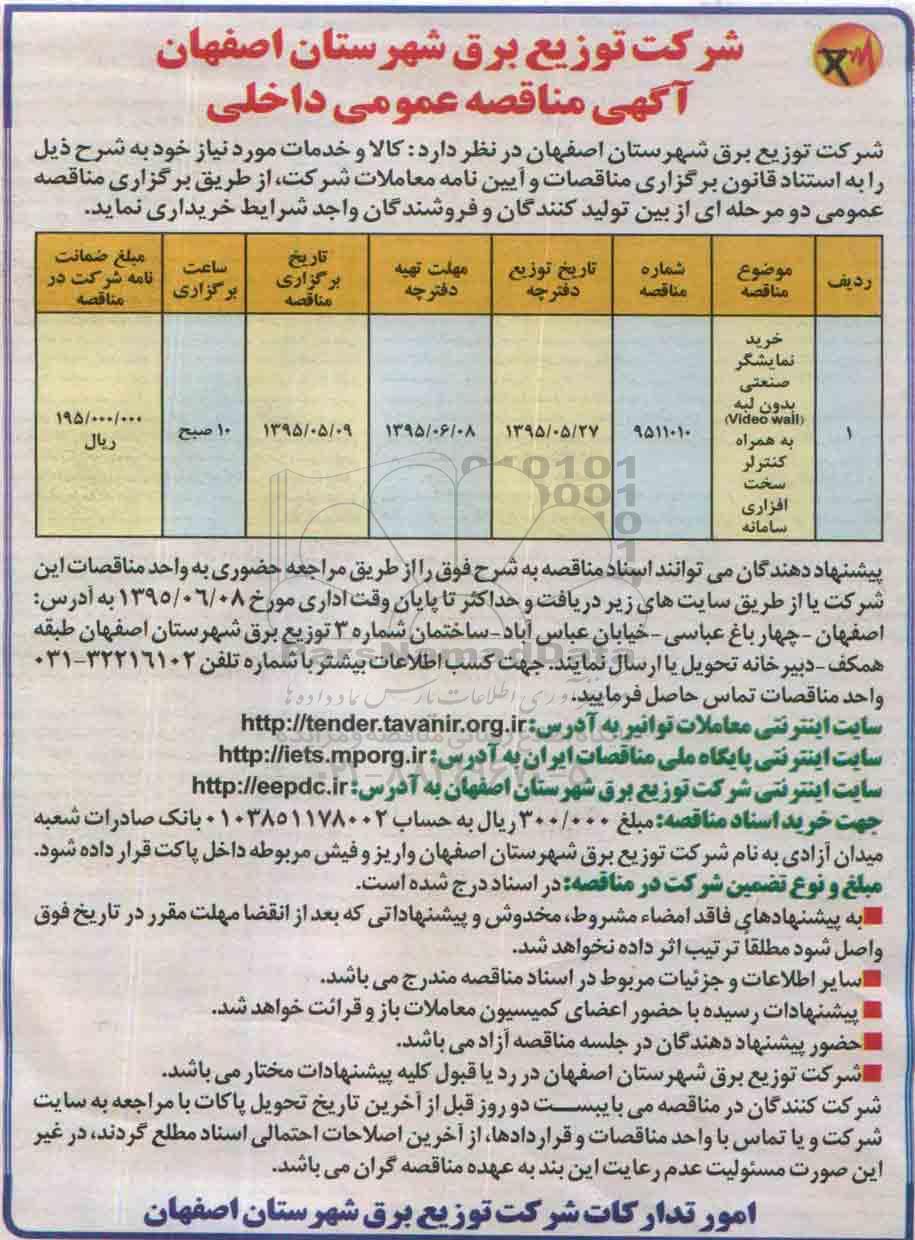 شرکت توزیع برق شهرستان اصفهان
آگهی مناقصه عمومی داخلی
شرکت توزیع برق شهرستان اصفهان در نظر دارد: کالا و خدمات مورد نیاز خود به شرح ذیل
را به استناد قانون برگزاری مناقصات و آیین نامه معاملات شرکت، از طریق برگزاری مناقصه
عمومی دو مرحله ای از بین تولید کنندگان و فروشندگان واجد شرایط خریداری نماید.
ردیف
موضوع
مناقصه
شماره
مناقصه
تاریخ توزیع
دفترچه
مهلت تهیه
دفترچه
تاریخ
برگزاری
مناقصه
ساعت
برگزاری
مبلغ ضمانت
نامه شرکت در
مناقصه
۱
خرید
نمایشگر
صنعتی
بدون لبه
(Video wall)
به همراه
کنترلر
سخت
افزاری
سامانه
۹۵۱۱۰۱۰
۱۳۹۵/۰۵/۲۷
۱۳۹۵/۰۶/۰۸
۱۳۹۵/۰۵/۰۹
۱۰ صبح
۱۹۵/۰۰۰/۰۰۰
ریال
پیشنهاد دهندگان می توانند اسناد مناقصه به شرح فوق را از طریق مراجعه حضوری به واحد مناقصات این
شرکت یا از طریق سایت های زیر دریافت و حداکثر تا پایان وقت اداری مورخ ۱۳۹۵/۰۶/۰۸ به آدرس:
اصفهان -چهار باغ عباسی -خیابان عباس آباد-ساختمان شماره ۳ توزیع برق شهرستان اصفهان طبقه
همکف -دبیر خانه تحویل یا ارسال نمایند. جهت کسب اطلاعات بیشتر با شماره تلفن ۳۲۲۱۶۱۰۲-۰۳۱
واحد مناقصات تماس حاصل فرمایید.
سایت اینترنتی معاملات توانیر به آدرس: http://tender.tavanir.org.ir
سایت اینترنتی پایگاه ملی مناقصات ایران به آدرس: http://iets.mporg.ir
سایت اینترنتی شرکت توزیع برق شهرستان اصفهان به آدرس: http://eepdc.ir
جهت خرید اسناد مناقصه: مبلغ ۳۰۰/۰۰۰ ریال به حساب ۰۱۰۳۸۵۱۱۷۸۰۰۲ بانک صادرات شعبه
میدان آزادی به نام شرکت توزیع برق شهرستان اصفهان واریز و فیش مربوطه داخل پاکت قرار داده شود.
مبلغ و نوع تضمین شرکت در مناقصه: در اسناد درج شده است.
■ به پیشنهادهای فاقد امضاء مشروط، مخدوش و پیشنهاداتی که بعد از انقضا مهلت مقرر در تاریخ فوق
واصل شود مطلقاً ترتیب اثر داده نخواهد شد.
■ سایر اطلاعات و جزئیات مربوط در اسناد مناقصه مندرج می باشد.
■ پیشنهادات رسیده با حضور اعضای کمیسیون معاملات باز و قرائت خواهد شد.
■ حضور پیشنهاد دهندگان در جلسه مناقصه آزاد می باشد.
■ شرکت توزیع برق شهرستان اصفهان در رد یا قبول کلیه پیشنهادات مختار می باشد.
شرکت کنندگان در مناقصه می بایبست دو روز قبل از آخرین تاریخ تحویل پاکات با مراجعه به سایت
شرکت و یا تماس با واحد مناقصات و قراردادها، از آخرین اصلاحات احتمالی اسناد مطلع گردند، در غیر
این صورت مسئولیت عدم رعایت این بند به عهده مناقصه گران می باشد.
امور تدارکات شرکت توزیع برق شهرستان اصفهان
ParsNamadData